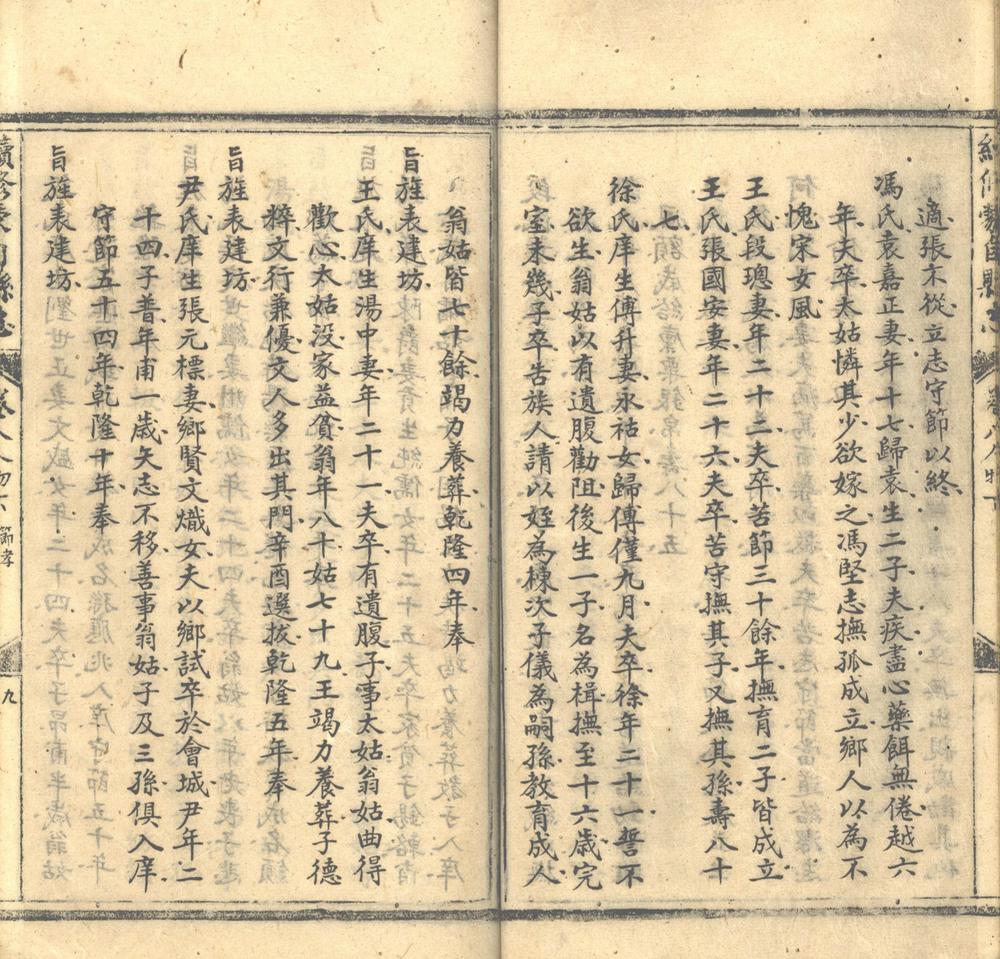 適張不從立志守節以終
馮氏袁嘉正妻年十七歸袁生二子夫疾盡心藥餌無倦越六
年夫卒太姑憐其少欲嫁之馮堅志撫孤成立鄉人以為不
愧宋女風
王氏段璁妻年二十二夫卒苦節三十餘年撫育二子皆成立
王氏張國安妻年二十六夫卒苦守撫其子又撫其孫壽八十
七
徐氏庠生傅升妻永祜女歸傅僅九月夫卒徐年二十一誓不
欲生翁姑以有遺腹勸阻後生一子名為楫撫至十六歲完
室未幾子卒告族人請以姪為棟次子儀為嗣孫教育成人
翁姑皆七十餘竭力養葬乾隆四年奉
旨旌表建坊
王氏庠生湯中妻年二十一夫卒有遺腹子事太姑翁姑曲得
歡心太姑没家益貧翁年八十姑七十九王竭力養葬子德
粹文行兼優文人多出其門辛酉選拔乾隆五年奉
旨旌表建坊
尹氏庠生張元標妻鄉賢文熾女夫以鄉試卒於會城尹年二
十四子普年甫一歲矢志不移善事翁姑子及三孫俱入庠
守節五十四年乾隆十年奉
旨旌表建坊
續修 縣志
卷八人物下 節孝
九